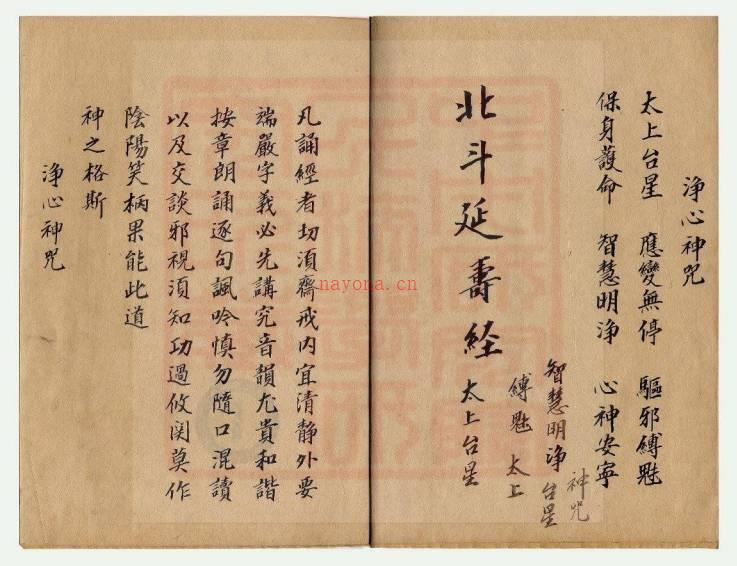 淨心神咒
太上台星　應變無停　驅邪縛魅
保身護命　智慧明淨　心神安寧
神咒
智慧明淨　台星
縛魅　太上
北斗延壽経　太上台星
凡誦經者切須齋戒內宜清静外要
端嚴字義必先講究音韻尤貴和諧
按章朗誦逐句諷吟慎勿隨口混讀
以及交談邪視須知功過攸関莫作
陰陽笑柄果能此道
神之格斯
淨心神咒
nayona.cn